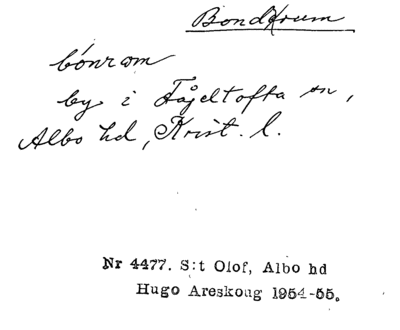 Bondkrum
bónrom
by i Fågeltofta sn,
Albo hd, Krist. l.
Nr 4477. S:t Olof, Albo hd
Hugo Areskoug 1954-55.